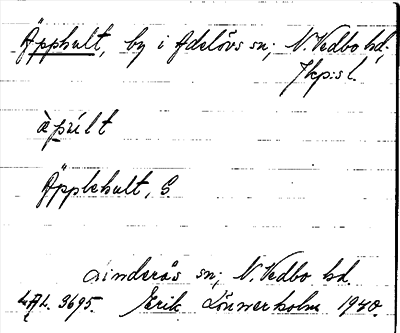 Äpphult, by i Adelövs sn; N. Vedbo hd;
Jkp:s l.
àpúlt
Äpplehult, G
Linderås sn; N. Vedbo hd.
3695. Erik Lönnerholm 1940.